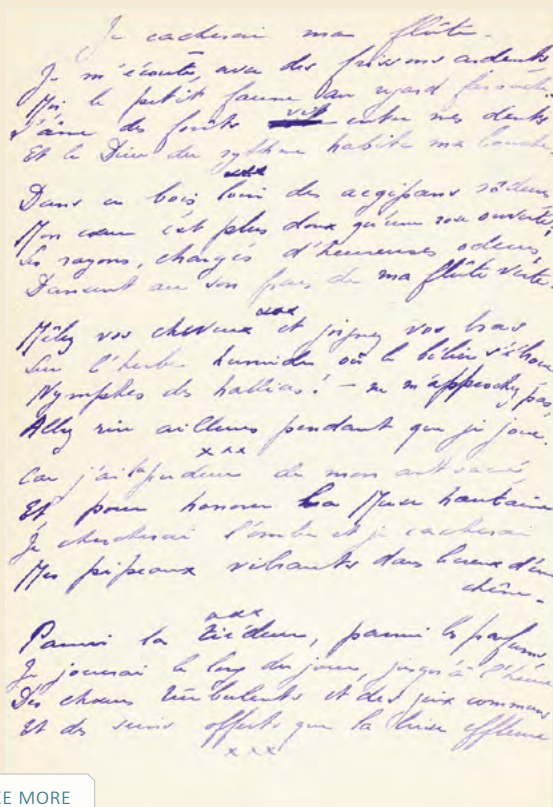 Je cacherai ma flûte.
Je m'écoute, avec des frissons ardents
Moi le petit faune au regard farouche.
L'âme des forêts vit entre mes dents
Et le Dieu du rythme habite ma bouche.
xxx
Dans ce bois loin des aegipans rôdeurs
Mon cœur est plus doux qu'une rose ouverte;
Les rayons, chargés d'heureuses odeurs,
Dansent au son frais de ma flûte verte.
xxx
Mêlez vos cheveux et joignez vos bras
Sur l'herbe humide où le bélier s'ébroue
Nymphes des halliers! – ne m'approchez pas,
Allez rire ailleurs pendant que je joue.
xxx
Car j'ai la pudeur de mon art sacré,
Et pour honorer la Muse hautaine
Je chercherai l'ombre et je cacherai
Mes pipeaux vibrants dans le creux d'un
chêne.
xxx
Parmi la tiédeur, parmi les parfums
Je jouerai le long du jour, jusqu'à l'heure
Des chœurs turbulents et des jeux communs
Et des seins offerts que la brise effleure
xxx
EE MORE